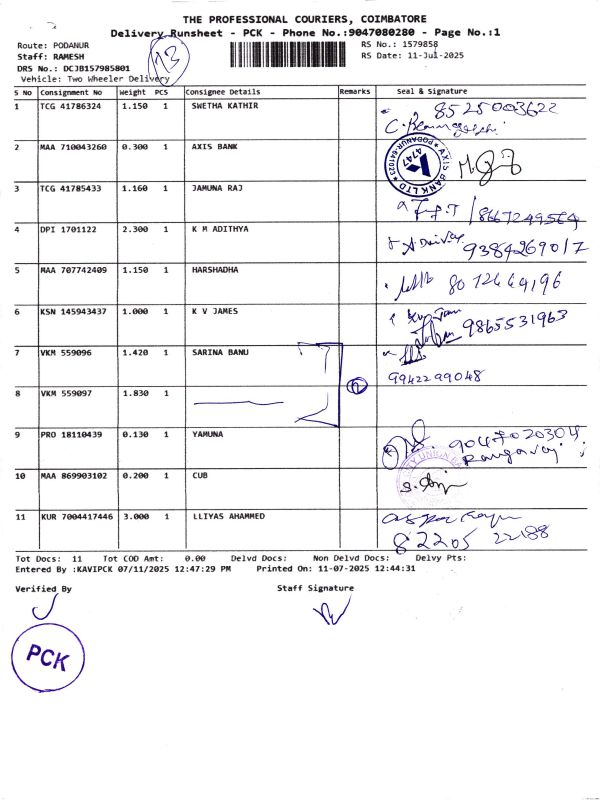 THE PROFESSIONAL COURIERS, COIMBATORE
Delivery Runsheet - PCK - Phone No.:9047080280 - Page No.:1
Route: PODANUR
Staff: RAMESH
DRS No.: DCJB157985801
Vehicle: Two Wheeler Delivery
13
RS No.: 1579858
RS Date: 11-Jul-2025
S No Consignment No Weight PCS Consignee Details Remarks Seal & Signature
1 TCG 41786324 1.150 1 SWETHA KATHIR 8525003622
2 MAA 710043260 0.300 1 AXIS BANK
AXIS BANK LTD PODANUR-641023 4747
3 TCG 41785433 1.160 1 JAMUNA RAJ 8667249564
4 DPI 1701122 2.300 1 K M ADITHYA 9384269017
5 MAA 707742409 1.150 1 HARSHADHA 8072664196
6 KSN 145943437 1.000 1 K V JAMES 9865531963
7 VKM 559096 1.420 1 SARINA BANU
9942299048
8 VKM 559097 1.830 1 2
9 PRO 18110439 0.130 1 YAMUNA 9047020304
10 MAA 869903102 0.200 1 CUB
11 KUR 7004417446 3.000 1 LLIYAS AHAMMED
82205 22188
Tot Docs: 11 Tot COD Amt: 0.00 Delvd Docs: Non Delvd Docs: Delvy Pts:
Entered By :KAVIPCK 07/11/2025 12:47:29 PM Printed On: 11-07-2025 12:44:31
Verified By Staff Signature
PCK